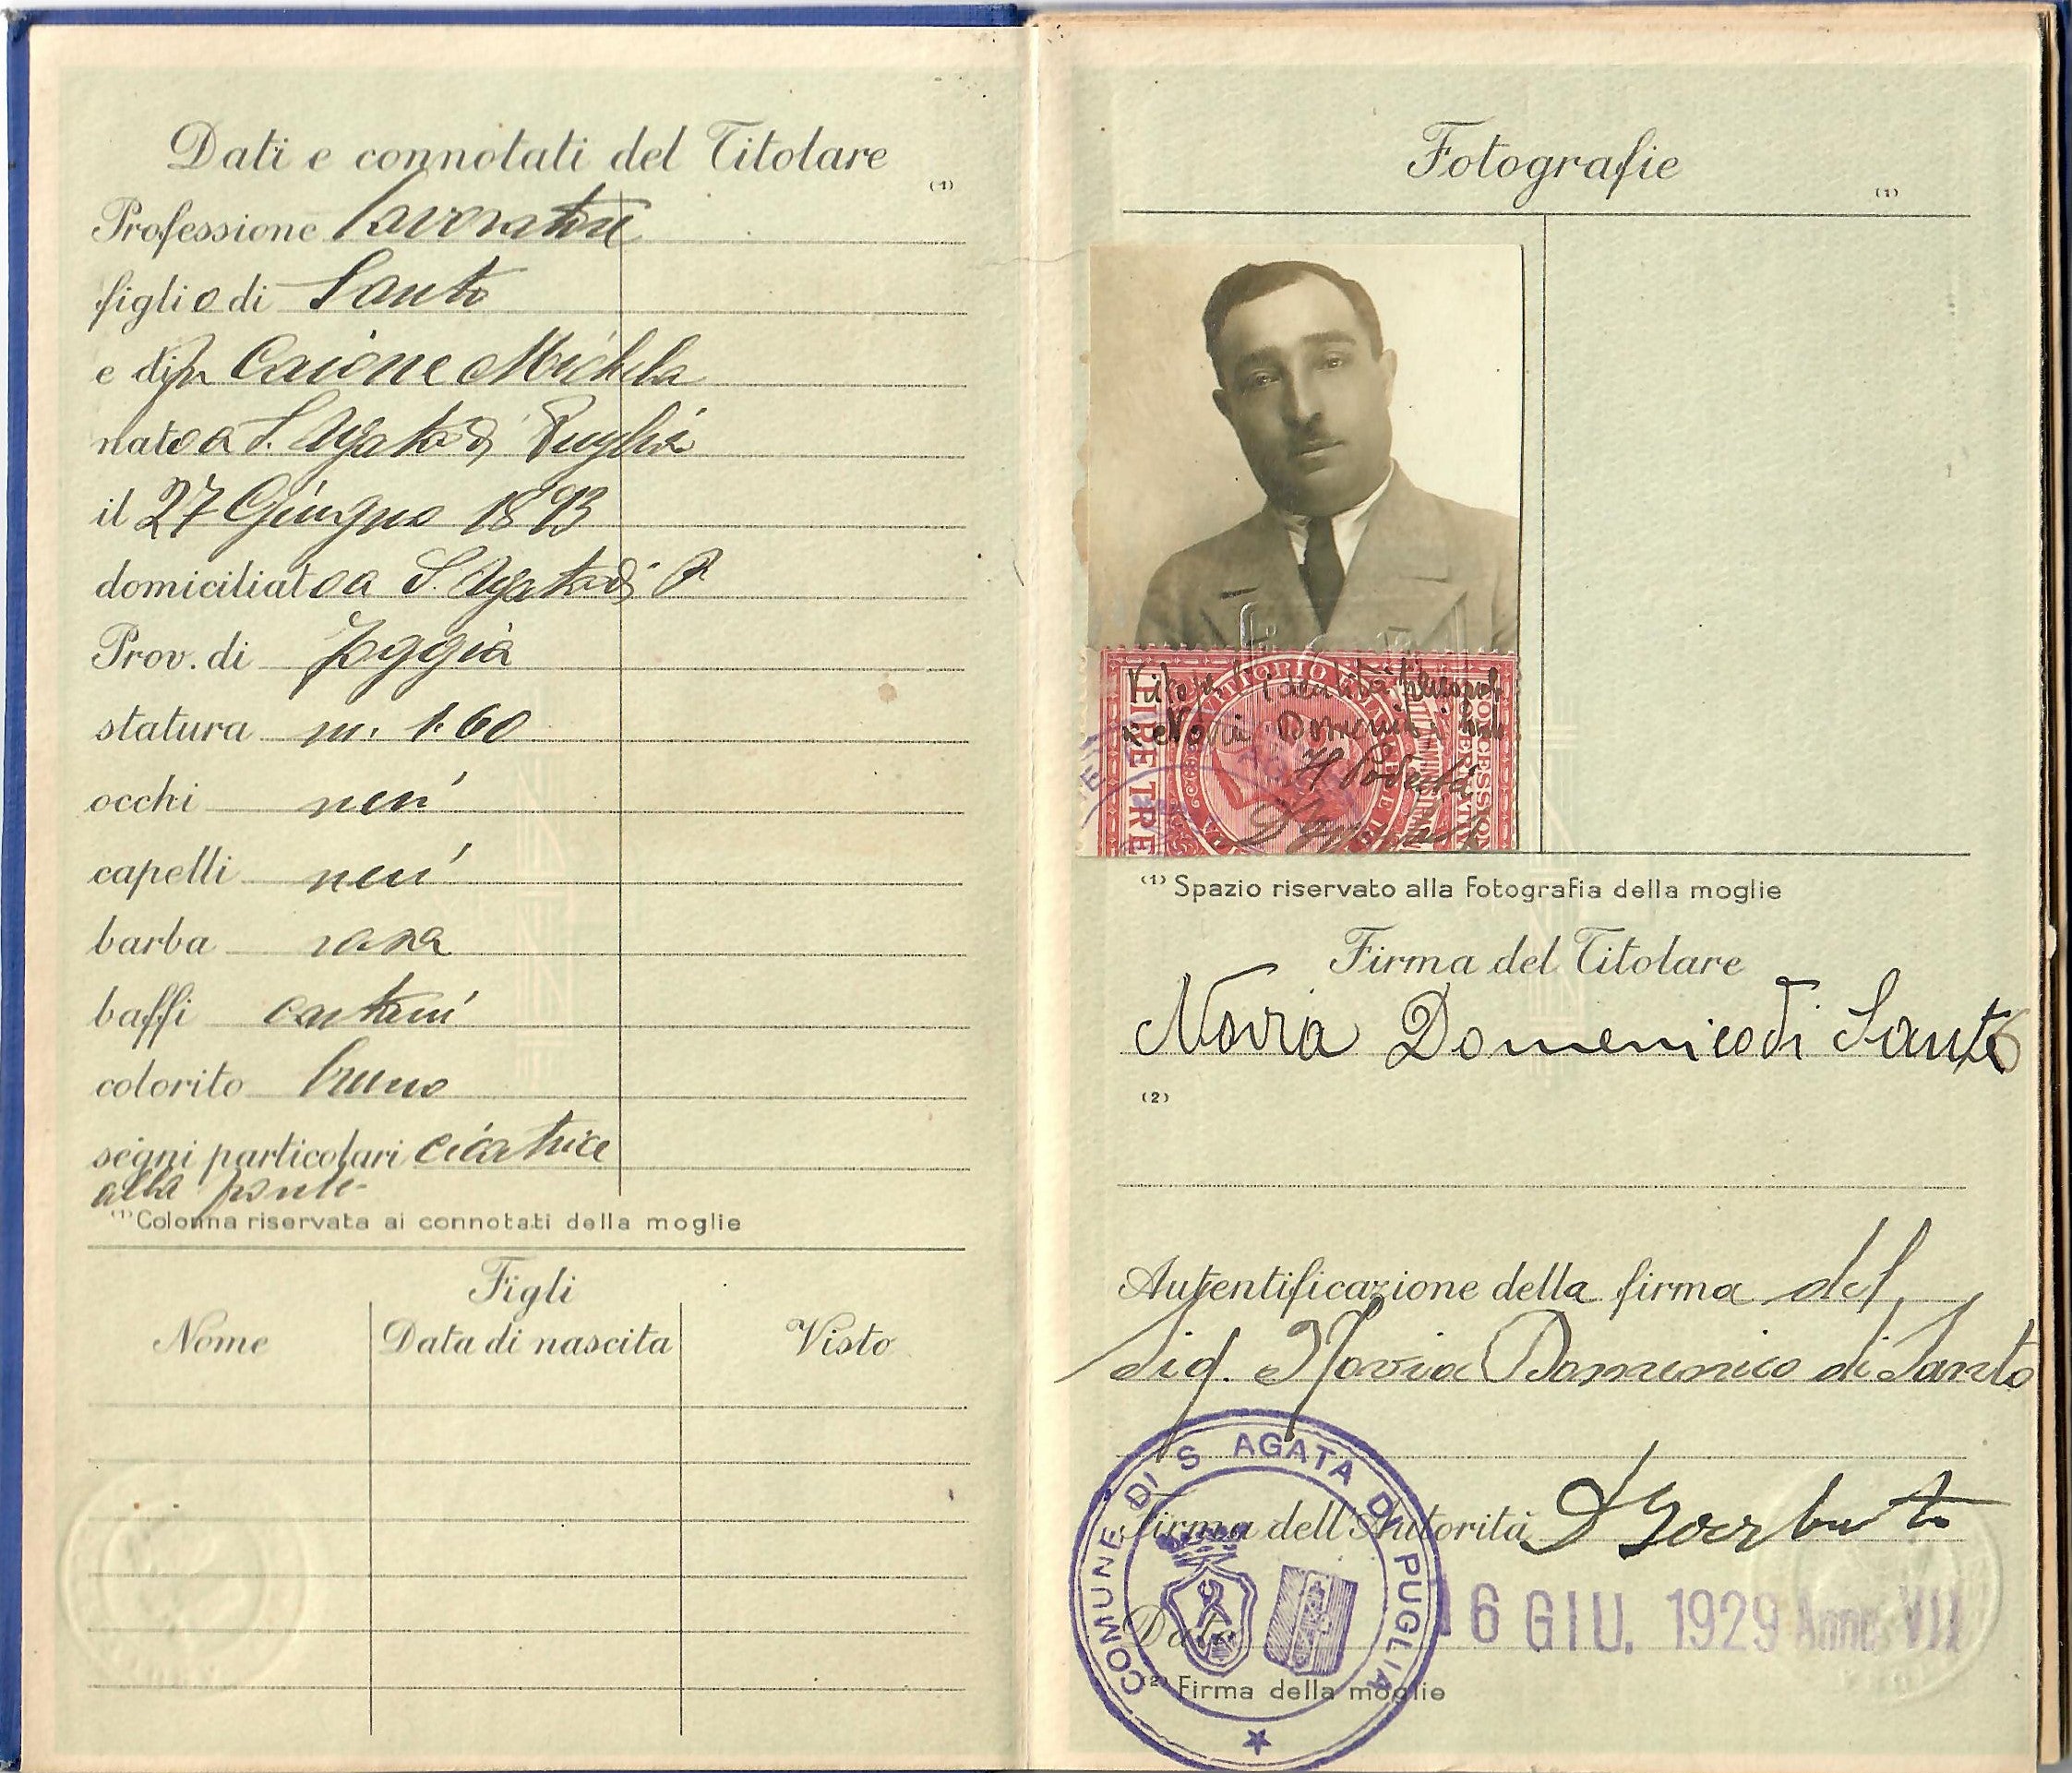 Dati e connotati del Titolare
(1)
Professione lavoratore
figlio di Santo
e di fu Caione Michela
nato a S. Agata di Puglia
il 27 Giugno 1893
domiciliato a S. Agata di P.
Prov. di Foggia
statura m. 1.60
occhi neri
capelli neri
barba rasa
baffi castani
colorito bruno
segni particolari cicatrice
alla fronte
(1) Colonna riservata ai connotati della moglie
Figli
Nome Data di nascita Visto
Fotografie
(1)
Visto per l'identità personale
Novia Domenico di Santo
Il Podestà
VITTORIO EMANUELE
LIRE TRE
CONCESSIONI
GOVERNATIVE
(1) Spazio riservato alla fotografia della moglie
Firma del Titolare
Novia Domenico di Santo
(2)
Autentificazione della firma del
Sig. Novia Domenico di Santo
COMUNE DI S AGATA DI PUGLIA
Firma dell'Autorità
Data 16 GIU. 1929 Anno VII
(2) Firma della moglie